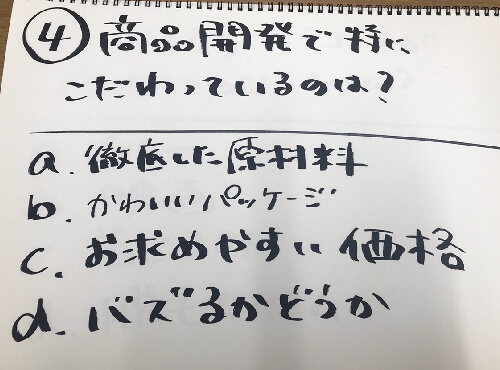 ④ 商品開発で特に
こだわっているのは?
a. 徹底した原材料
b. かわいいパッケージ
c. お求めやすい価格
d. バズるかどうか